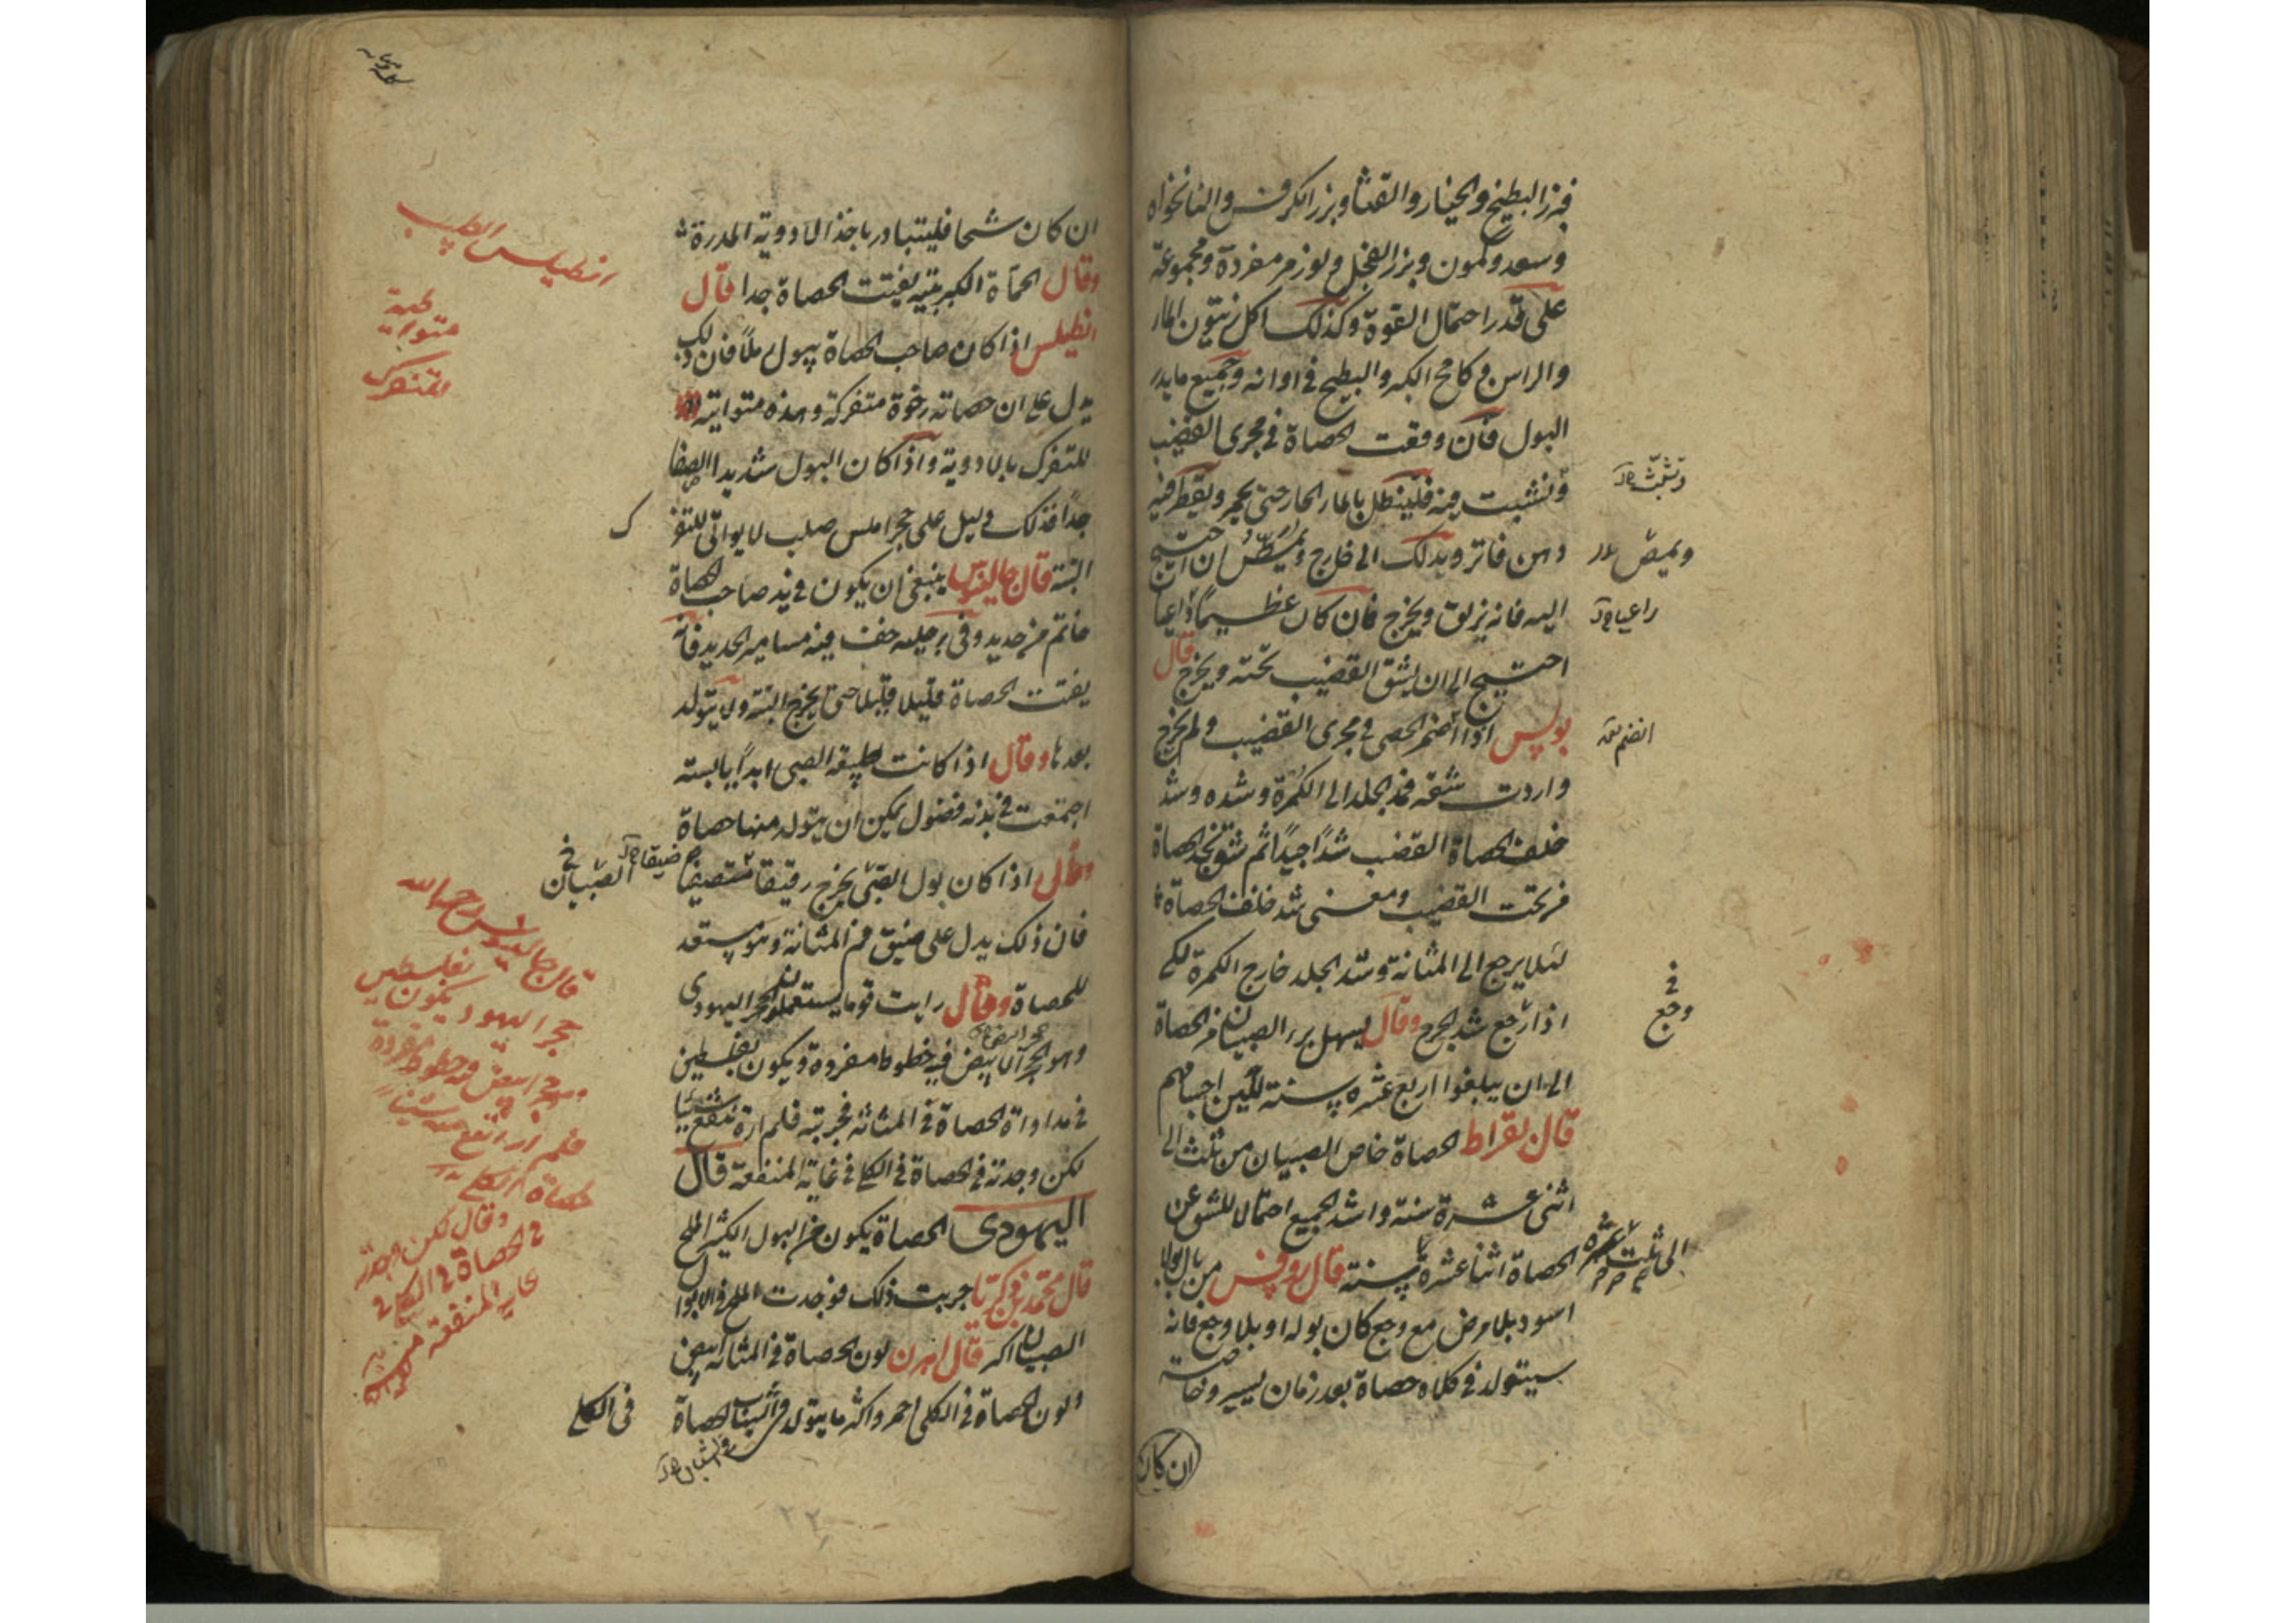 فبزر البطيخ والخيار والقثا وبزر الكرفس والنانخواه
وسعد وكمون وبزر الفجل ولوز مر مفردة ومجموعة
على قدر احتمال القوة وكذلك اكل زيتون الماء
والراس وكامخ الكبر والبطيخ في اوانه وجميع ما يدر
البول فان وقعت الحصاة في مجرى القضيب
ونشبت فيه فلينطل بالماء الحار حتى يحمر ويقطر فيه
دهن فاتر ويدلك الى خارج ويمص ان احتيج
اليه فانه يزلق ويخرج فان كان عظيما
احتيج الى ان يشق القضيب تحته ويخرج قال
بولس اذا انضم الحصى في مجرى القضيب ولم يخرج
واردت شقه فمد الجلد الى الكمرة وشده وشد
خلف الحصاة القضيب شدا جيدا ثم شق تجد الحصاة
من تحت القضيب ومعنى شد خلف الحصاة
لئلا يرجع الى المثانة وشد الجلد خارج الكمرة لكي
اذا رجع شد الجرح وقال يسهل برا الصبيان من الحصاة
الى ان يبلغوا اربع عشره سنة للين اجسامهم
قال بقراط الحصاة خاص الصبيان من ثلث الى
اثنى عشرة سنة واشد الجميع احتمالا للشق عن
الحصاة اثنا عشرة سنة قال روفس من بال بولا
اسود بلا مرض مع وجع كان بوله او بلا وجع فانه
سيتولد في كلاه حصاة بعد زمان يسير وخاصة
ان كان
ويمص
انضم
في
وجع
الى ثلث عشره
ان كان شيخا فليتبادر باخذ الادوية المدرة
وقال الحماة الكبريتية يفتت الحصاة جدا قال
انطيلس اذا كان صاحب الحصاة يبول رملا فان ذلك
يدل على ان حصاته رخوة متفركة وهذه متواتية
للتفرك بالادوية واذا كان البول شديدا الصفا
جدا فذلك دليل على حجر املس صلب لا يواتى للتفرك
البتة قال جالينوس ينبغى ان يكون في يد صاحب الحصاة
خاتم من حديد وفى رجليه خف فيه مسامير الحديد فانه
يفتت الحصاة قليلا قليلا حتى يخرج البتة ولا يتولد
بعدها وقال اذا كانت طبيعة الصبى ابدا يابسته
اجتمعت في بدنه فضول يمكن ان يتولد منها حصاة
وقال اذا كان بول الصبى يخرج رقيقا
فان ذلك يدل على ضيق فم المثانة وهو مستعد
للحصاة وقال رايت قوما يستعملون الحجر اليهودى
وهو الحجر الابيض فيه خطوط مفردة ويكون بفلسطين
في مداواة الحصاة في المثانه فجربته فلم اره ينفع شيئا
لكن وجدته في الحصاة في الكلى في غاية المنفعة قال
اليهودى الحصاة يكون من البول الكثير الملح
قال محمد بن زكريا جربت ذلك فوجدت الملح في الابوال
الصبيان اكثر قال اهرن لون الحصاة في المثانه ابيض
ولون الحصاة في الكلى احمر واكثر ما يتولد الحصاة
في الكلى
انطيلس الطبيب
الصبيان
قال جالينوس رحمه الله
حجر اليهود يكون بفلسطين
وهو حجر ابيض فيه خطوط مفردة
وقال لكن وجدته
في الحصاة في الكلى في
غاية المنفعة